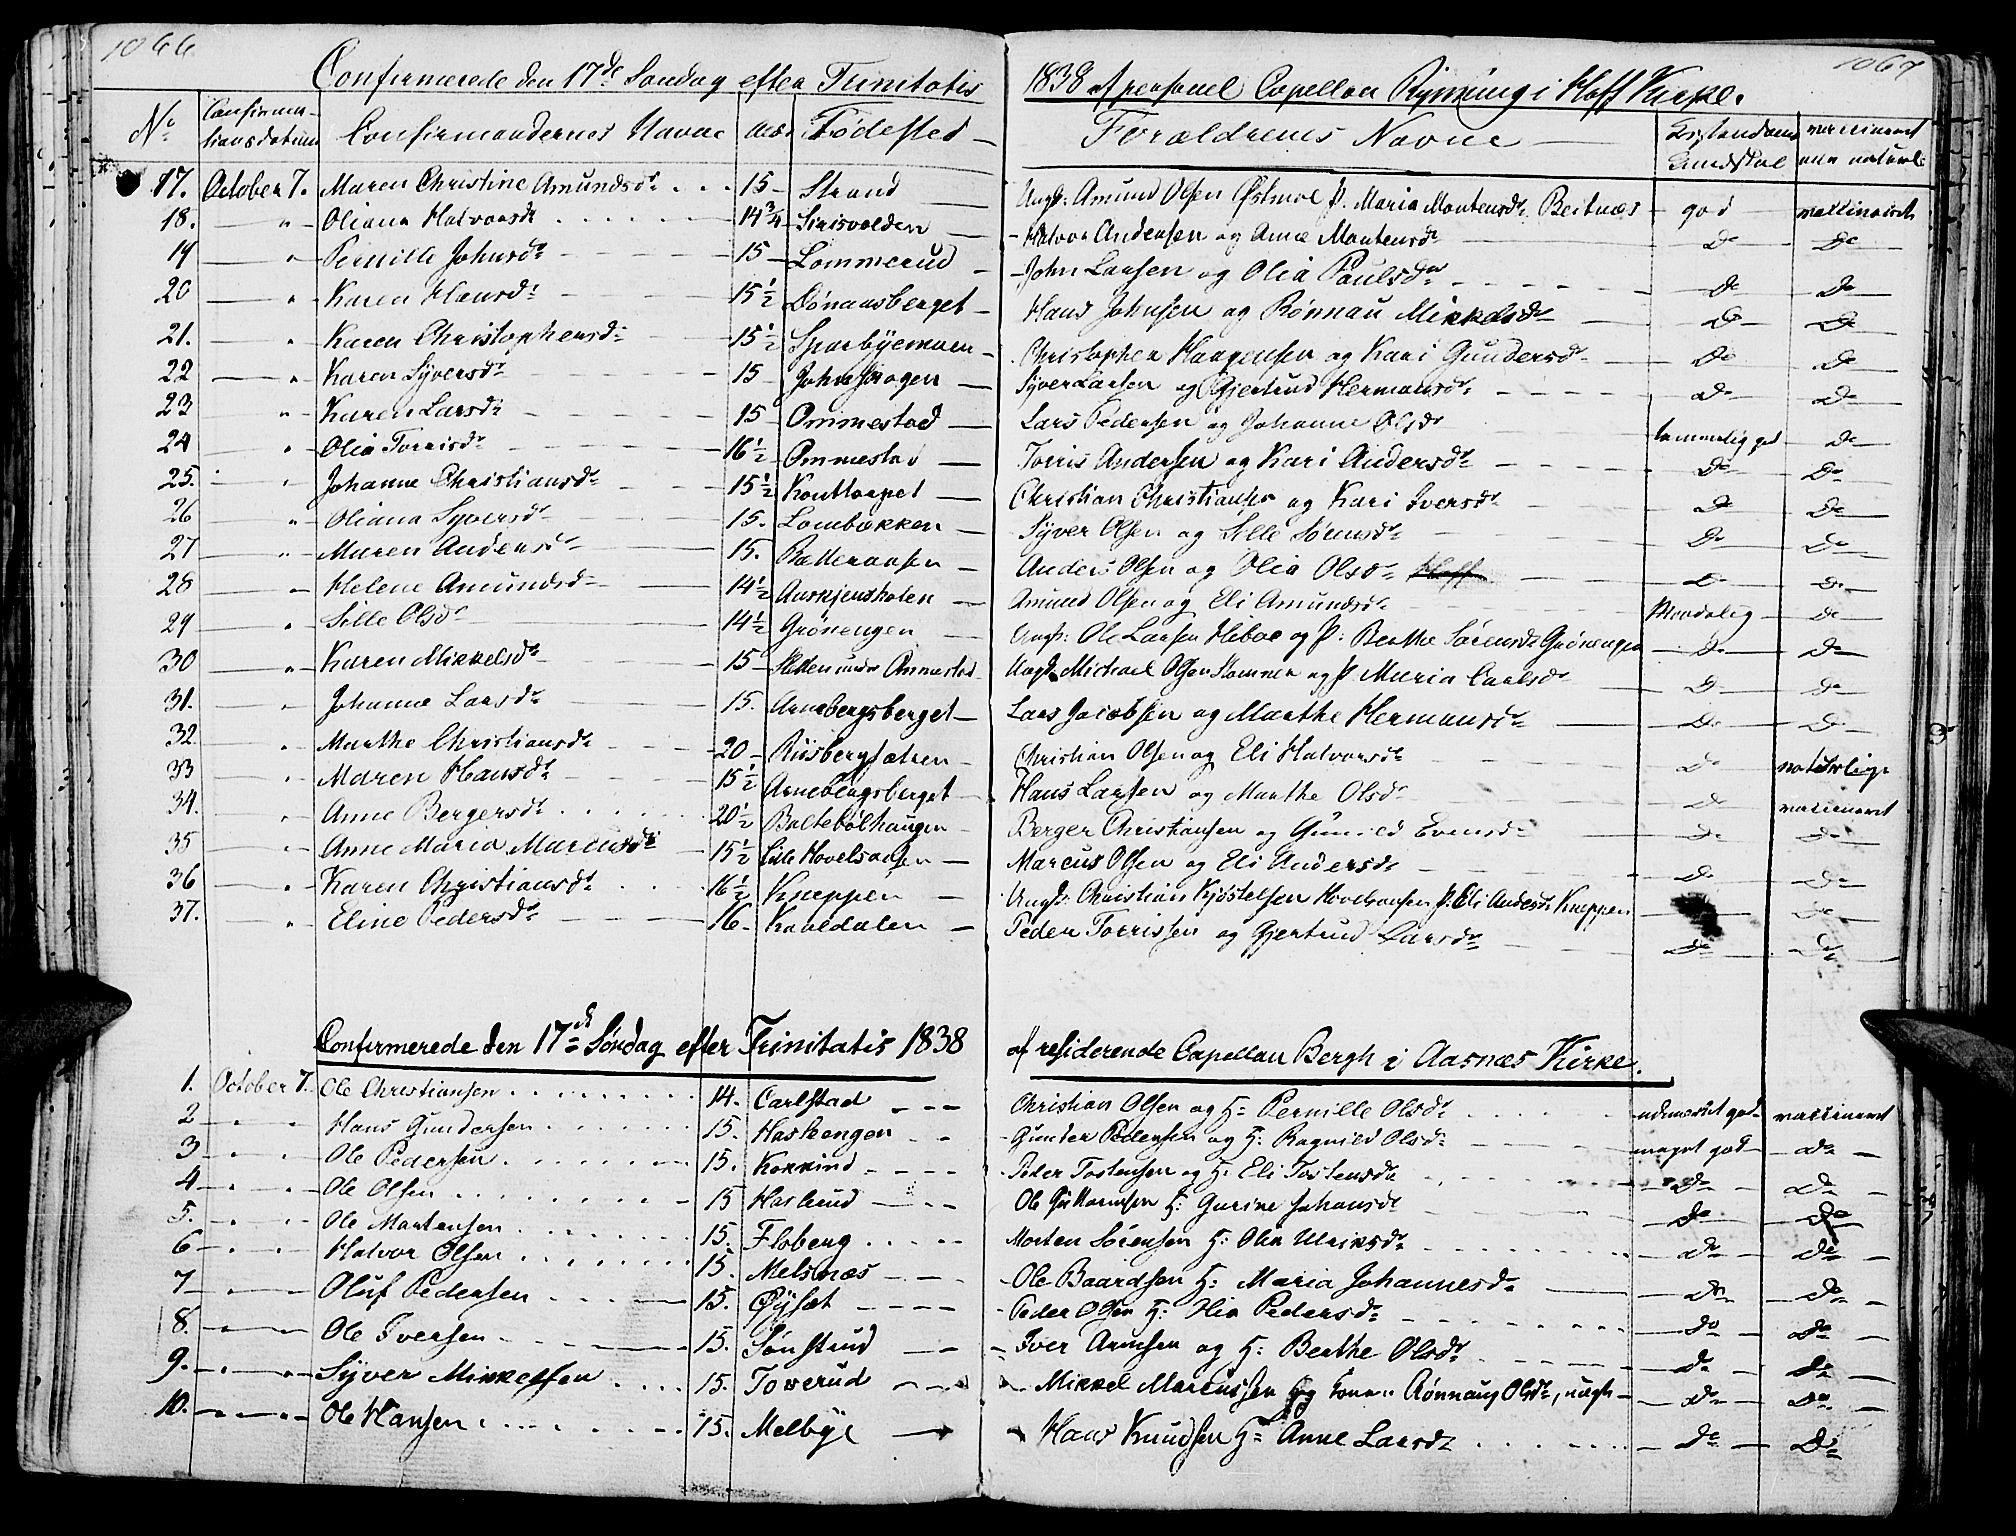 1066
1067
Confirmerede den 17de Søndag efter Trinitatis 1838 af personel Capellan Rynning i Hoff Kirke.
No Confirmationsdatum Confirmandernes Navne Alder Fødested Forældrenes Navne Christendoms Kundskab vaccineret eller naturl:
17. October 7. Maren Christine Amundsdr 15 Strand Ungk: Amund Olsen Østmoe P. Maria Mortensdr Beitnæs god vaccineret
18. " Oliana Halvorsdr 14 3/4 Halvor Andersen og Anne Mortensdr Do Do
19 " Pernille Johnsdr 15 Lommerud John Larsen og Olia Paulsdr Do Do
20 " Karen Hansdr 15 1/2 Hans Johnsen og Rønnau Mikkelsdr Do Do
21. " Karen Christophersdr 15 1/2 Sparbyemoen Christopher Haagensen og Kari Gundersdr Do Do
22 " Karen Syversdr 15 Johnshagen Syver Larsen og Gjertrud Hermansdr Do Do
23 " Karen Larsdr 15 Ommestad Lars Pedersen og Johanne Olsdr temmelig god Do
24 " Olia Torrisdr 16 1/2 Ommestad Torris Andersen og Kari Andersdr Do Do
25. " Johanne Christiansdr 15 1/2 Konttorpet Christian Christiansen og Kari Iversdr Do Do
26 " Oliana Syversdr 15. Lombækken Syver Olsen og Sille Sørensdr Do Do
27 " Maren Andersdr 15. Anders Olsen og Olia Olsdr Hoff Do Do
28 " Helene Amundsdr 14 1/2 Amund Olsen og Eli Amundsdr Maadelig Do
29 " Sille Olsdr 14 1/2 Grønengen Ungk: Ole Larsen Hiboe og P: Berthe Sørensdr Grønengen Do Do
30 " Karen Mikkelsdr 15 under Ommestad Ungk. Michael Olsen og P. Maria Carlsdr Do Do
31. " Johanne Larsdr 15. Arnebergsberget Lars Jacobsen og Marthe Hermansdr Do Do
32. " Marthe Christiansdr 20 Riisbergsætren Christian Olsen og Eli Halvorsdr Do naturlige
33 " Maren Hansdr 15 1/2 Arnebergsberget Hans Larsen og Marthe Olsdr Do vaccineret
34. " Anne Bergersdr 20 1/2 Baltebølhaugen Berger Christiansen og Gunild Evensdr Do Do
35 " Anne Maria Marcusdr 15 1/2 Lille Hovelsaasen Marcus Olsen og Eli Andersdr Do Do
36 " Karen Christiansdr 16 1/2 Knappen Ungk: Christian Kjøstelsen Hovelsaasen P. Eli Andersdr Knappen Do
37. " Eline Pedersdr 16. Kaaldalen Peder Torrissen og Gjertrud Larsdr Do Do
Confirmerede den 17de Søndag efter Trinitatis 1838 af residerende Capellan Bergh i Aasnæs Kirke.
1. October 7. Ole Christiansen 14. Carlstad Christian Olsen og H: Pernille Olsdr udmærket god vaccineret
2 " " Hans Gundersen 15. Haskengen Gunder Pedersen og H: Ragnild Olsdr meget god Do
3 " " Ole Pedersen 15. Kokkind Peder Tostensen og H: Eli Tostensdr Do Do
4 " " Ole Olsen 15 Haslerud Ole Guttormsen H: Gurine Johansdr Do Do
5. " " Ole Mortensen 15. Floberg Morten Sørensen H: Olea Ulriksdr Do Do
6 " " Halvor Olsen 15. Melsnæs Ole Baardsen H: Maria Johannesdr Do Do
7 " " Oluf Pedersen 15. Øysæt Peder Olsen H: Olia Pedersdr Do Do
8. " " Ole Iversen 15. Sønstrud Iver Arnesen og H: Berthe Olsdr Do Do
9. " " Syver Mikkelsen 15. Toverud Mikkel Marcussen og Rønnaug Olsdr, Do Do
10. " " Ole Hansen 15. Melbye Hans Knudsen H: Anne Larsdr Do Do